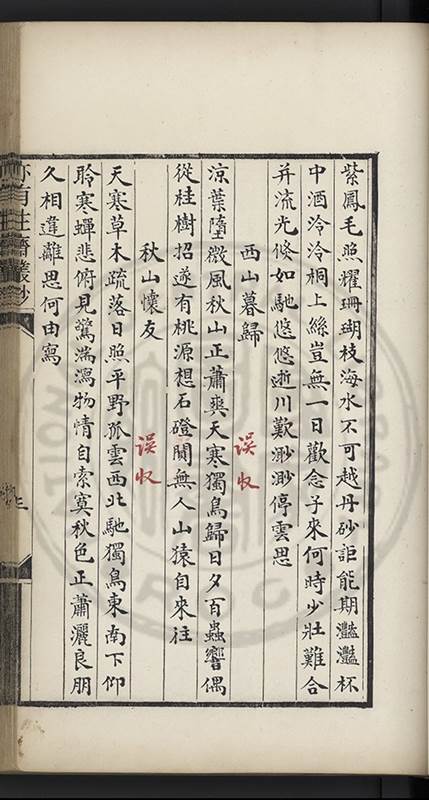 紫鳳毛照耀珊瑚枝海水不可越丹砂詎能期灩灩杯
中酒泠泠桐上絲豈無一日歡念子來何時少壯難合
并流光倐如馳悠悠逝川歎渺渺停雲思
西山暮歸
误收
涼葉墮微風秋山正蕭爽天寒獨鳥歸日夕百蟲響偶
從桂樹招遂有桃源想石磴閴無人山猿自來往
秋山懷友
误收
天寒草木疏落日照平野孤雲西北馳獨鳥東南下仰
聆寒蟬悲俯見驚湍瀉物情自索寞秋色正蕭灑良朋
久相違離思何由寫
亦有生齋叢鈔